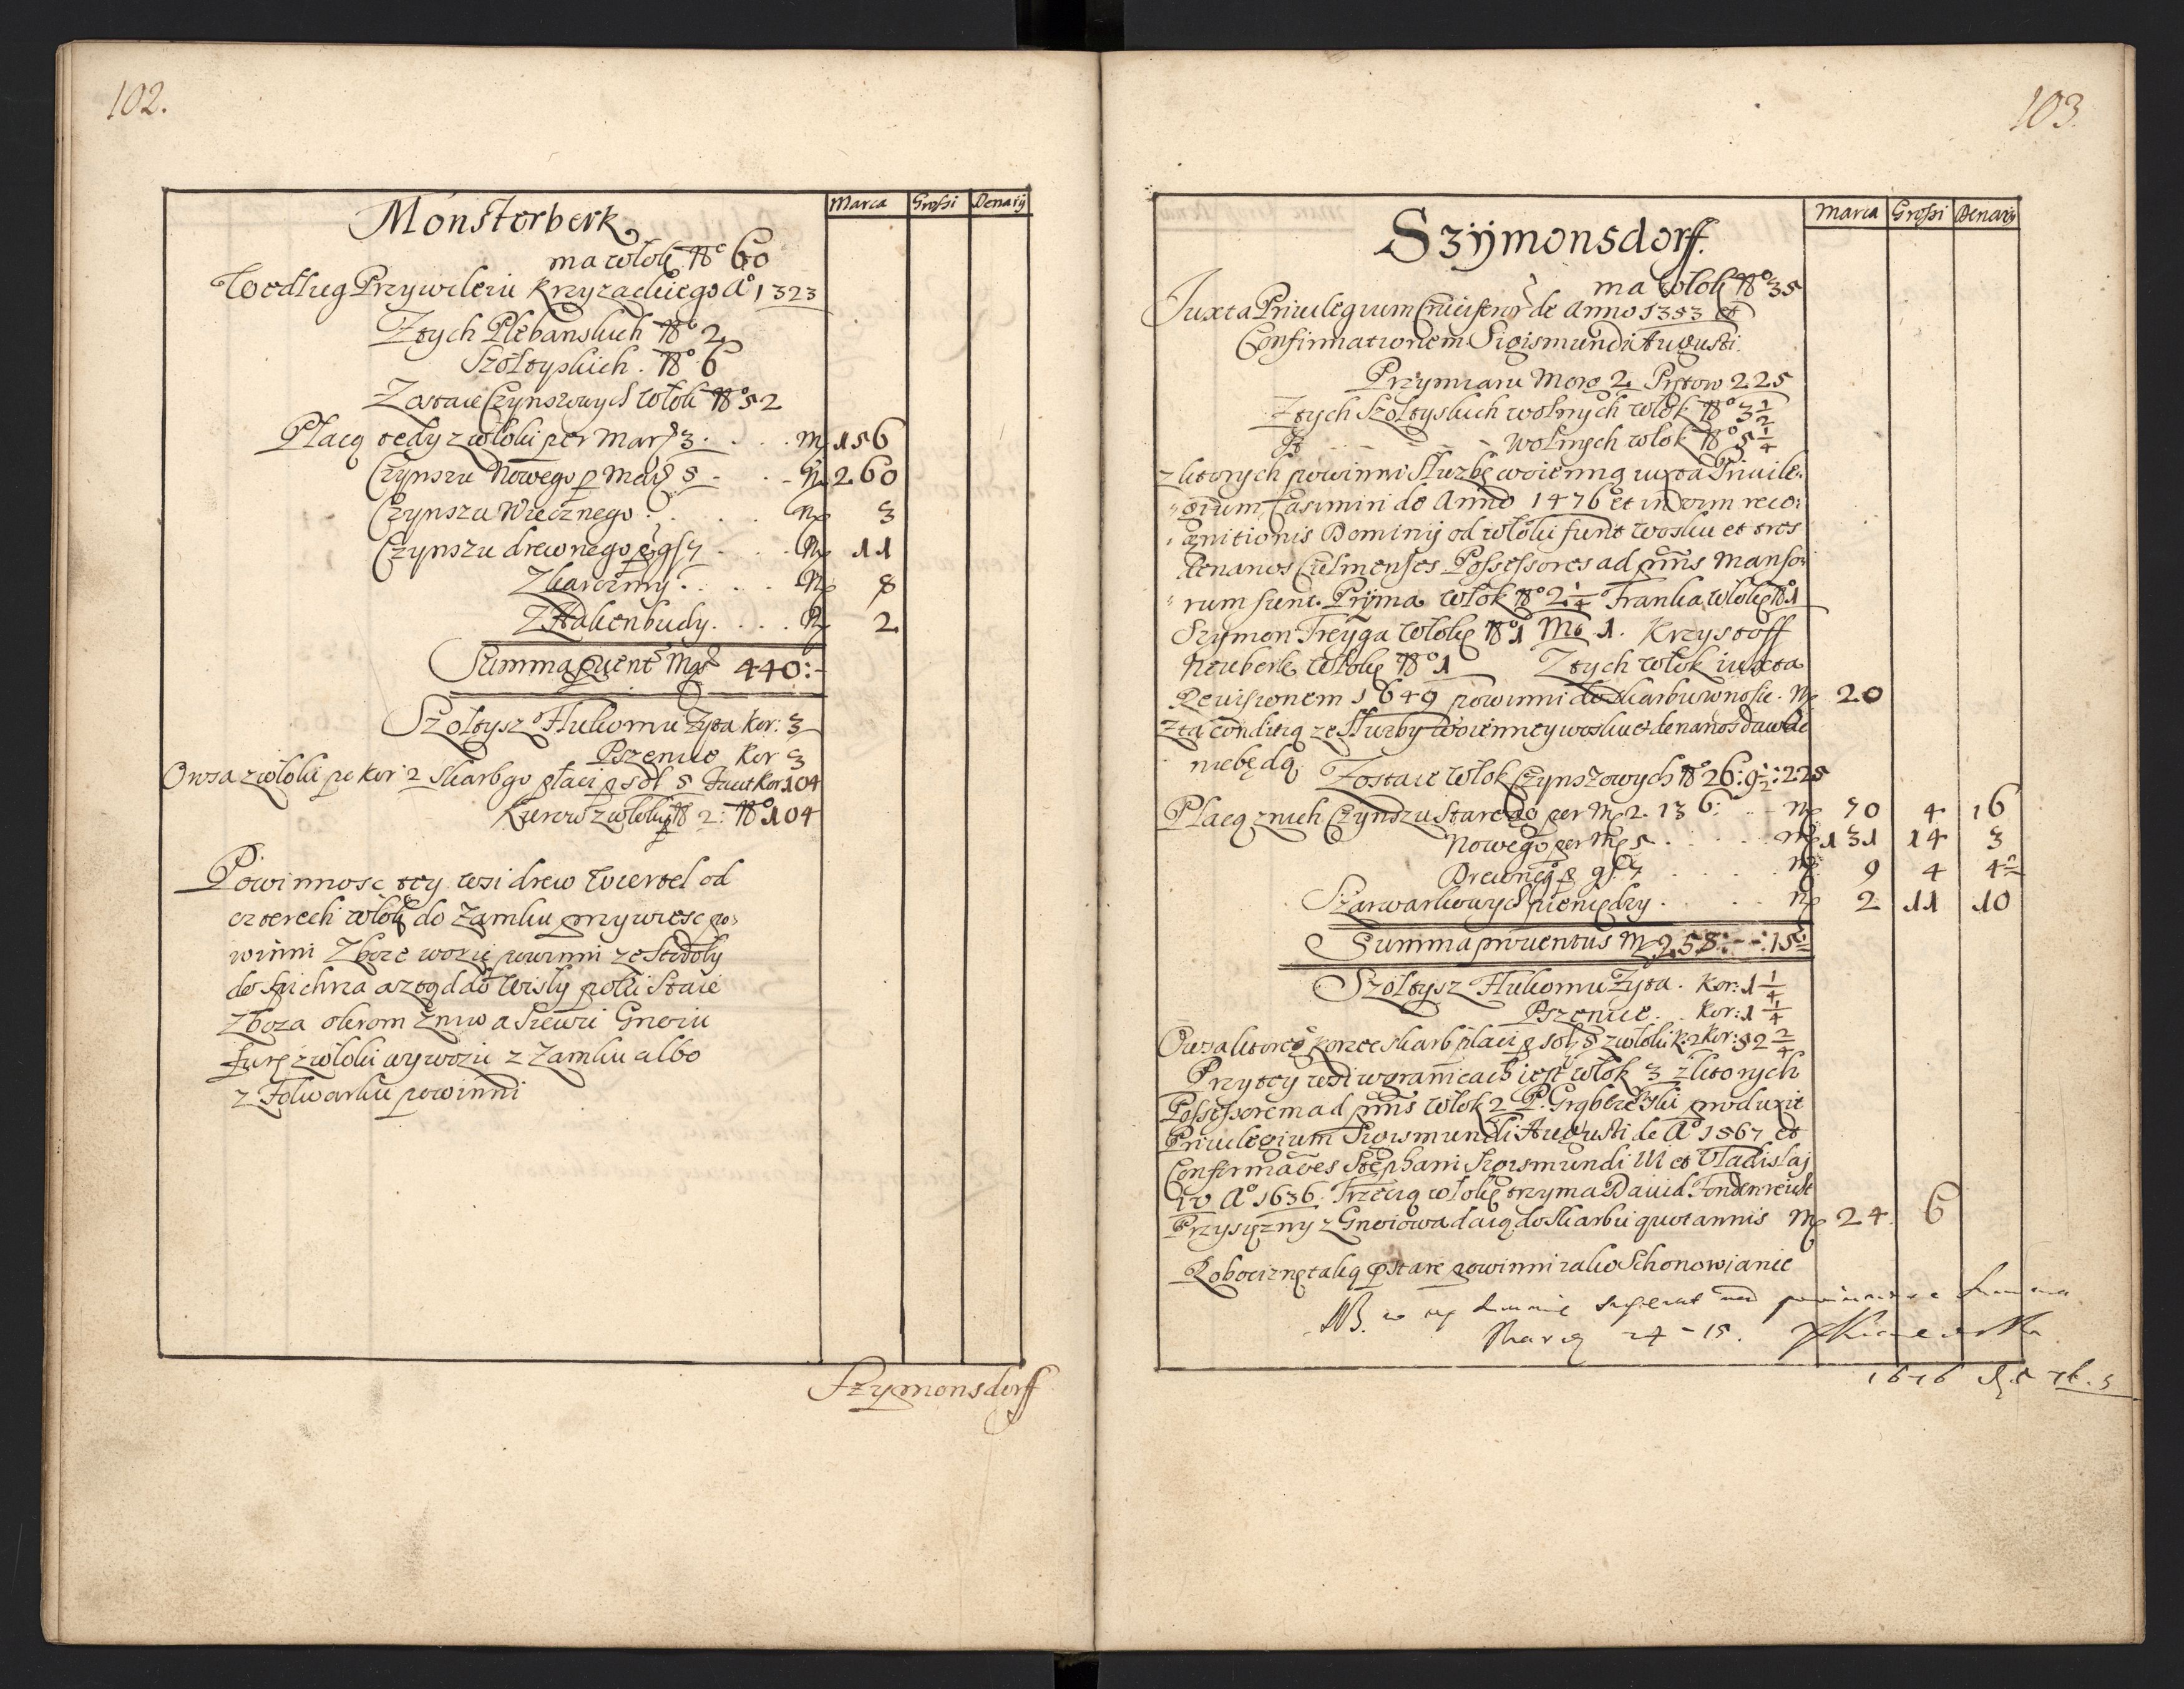 102.
Monsterberk
Marca Grossi Denarij
ma włok No 60
Wedlug Przywileiu Krzyzackiego Ao 1323
Z tych Plebanskich No 2
Szołtyskich. No 6
Zostaie Czynszowych Włok No 52
Płacą tedy z włoki per Mar 3. . . . M 156
Czynszu Nowego p Mar 5 - . - M 260
Czynszu Wiecznego . . . . . M 3
Czynszu drewnego p gs 7 . . . M 11
Z karczmy . . . . . M 8
Z Hakenbudy. . . . . M 2
Summa puent Mar 440:-
Szołtysz Hukomu Zyta kor: 3
Pszenice kor 3
Owsa z włoki po kor: 2 Skarb go płaci p sol 5 kor 104
Kurow z włoki p No 2: No 104
Powinnosc tey wsi drew Wiertel od
czterech włok do Zamku przywiesc po:
winni Zboze wozic powinni ze Stodoły
do spichrza a ztąd do Wisły polki Staie
Zboza okrom Zniwa Siewu Gnoiu
furę z włoki wywozic z Zamku albo
z Folwarku powinni
Szymonsdorff
103.
Szÿmonsdorff.
Marca Grossi Denarij
ma Włok No 35
Iuxta Priuilegium Cruciferor de Anno 1353 et
Confirmationem Sigismundi Augusti.
Przymiaru Morg 2 Prętow 225
Z tych Szołtyskich wolnych włok No 3 1/2
- - - - wolnych włok No 5 1/4
z ktorych powinni Służbę woienną iuxta Priuile:
gium Casimiri de Anno 1476 et in vim reco:
gnitionis Dominij od włoki funt wosku et tres
denarios Culmenses. Possessores ad pñs Manso:
rum sunt. Prÿma włok No 2 1/4 Franka włokę No 1
Szymon Treyga Włokę No 1 Mo 1. Krzysztoff
Neuberk Włokę No 1 Z tych włok iuxta
Reuisionem 1649 powinni do Skarbu wnosic. M 20
Z tą conditią ze Służby woienney wosku et denarios dawac
niebędą. Zostaie Włok Czynszowych No 26: 9 1/2: 225
Płacą z nich Czynszu Starego per M 2. 13 6: . - M 70 4 16
Nowego per M 5 . . . . . M 131 14 3
Drewneg p gs 7 . . . . . M 9 4 4 1/2
Szarwarkowych pieniędzy . . . . M 2 11 10
Summa prouentus M 258:-:15
Szołtysz Hukomu Zyta. kor: 1 1/4
Pszenice. kor: 1 1/4
Owsa ktoreo korzec Skarb płaci p sol 5 z włoki k: 2 kor: 52 2/4
Przy tey wsi w granicach iest włok 3 z ktorych
Possessorem ad pñs włok 2 P. Grąbczewski produxit
Priuilegium Sigismundi Augusti de Ao 1567 et
Confirmaoes Stephani Sigismundi III et Vladislaj
IV Ao 1636. Trzecią włokę trzyma Dauid
Przysięzny z Gnoiowa daią do Skarbu quotannis M 24. 6
Robociznę taką p stare powinni iako Schonowianie
NB. w tey Summie
Marcę 24 - 15.
1676